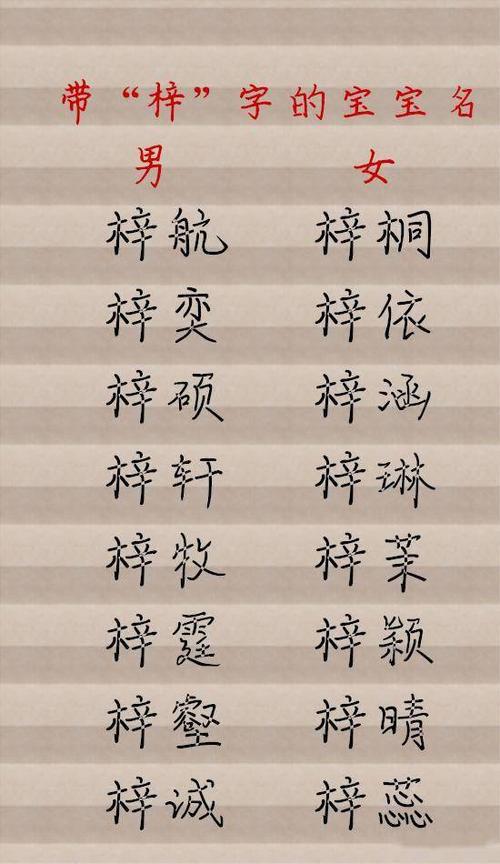 带“梓”字的宝宝名
男 女
梓航 梓桐
梓奕 梓依
梓硕 梓涵
梓轩 梓琳
梓牧 梓茉
梓霆 梓颖
梓壑 梓晴
梓诚 梓蕊